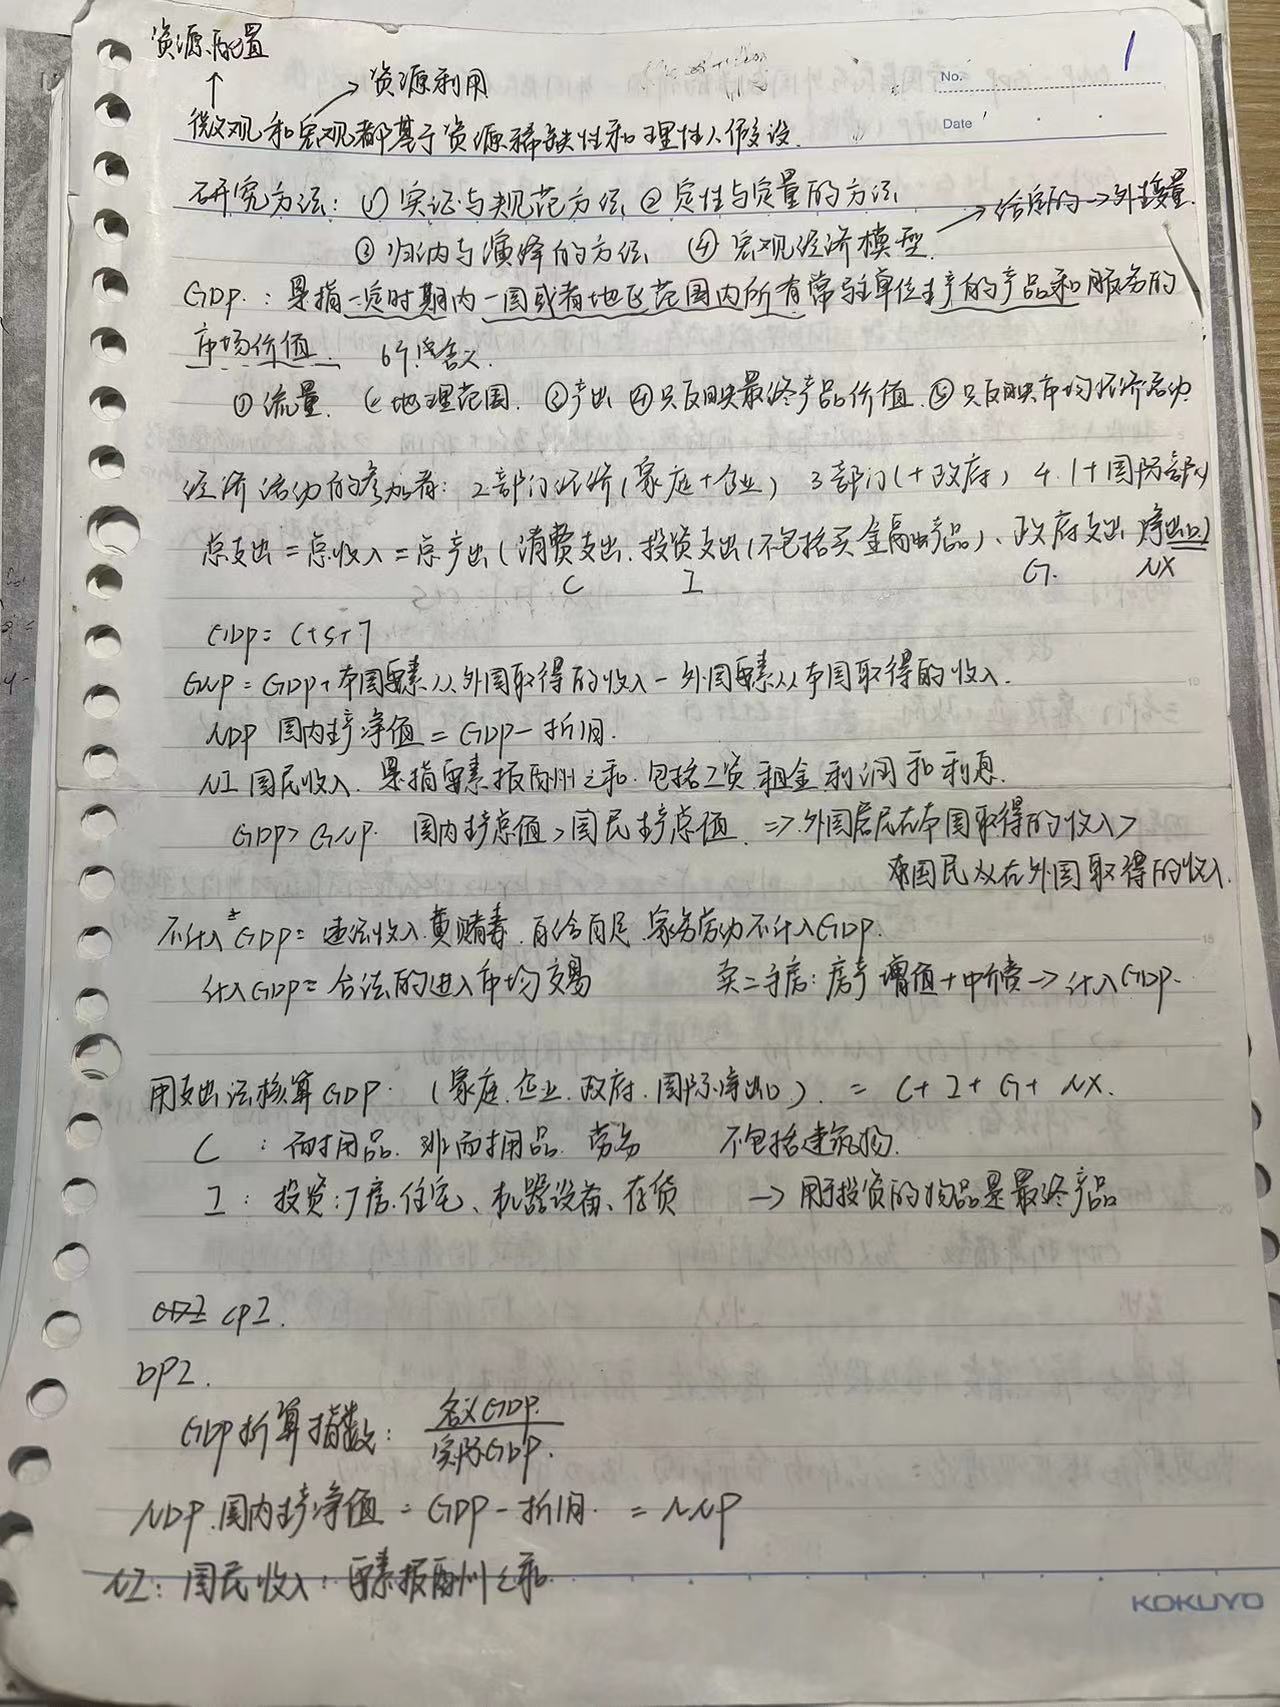 资源配置
1
No.
→ 资源利用
Date
微观和宏观都基于资源稀缺性和理性人假设.
研究方法: ① 实证与规范方法 ② 定性与定量的方法
→ 给定的→外生变量.
③ 归纳与演绎的方法 ④ 宏观经济模型
GDP.: 是指一定时期内一国或者地区范围内所有常驻单位生产的产品和服务的
市场价值. 6个含义.
① 流量. ② 地理范围. ③ 产出 ④ 只反映最终产品价值. ⑤ 只反映市场经济活动
经济活动的参加者: 2部门经济(家庭+企业) 3部门(+政府) 4.(+国际部门)
总支出=总收入=总产出(消费支出. 投资支出(不包括买金融产品)、政府支出 净出口)
C I G. NX
GDP= C+S+T
GNP=GDP+本国要素从外国取得的收入-外国要素从本国取得的收入.
NDP 国内生产净值=GDP-折旧.
NI 国民收入. 是指要素报酬之和. 包括工资 租金 利润和利息.
GDP>GNP. 国内生产总值>国民生产总值. => 外国居民在本国取得的收入>
本国民从在外国取得的收入.
不计入GDP= 违法收入. 黄赌毒. 自给自足. 家务劳动不计入GDP.
计入GDP= 合法的进入市场交易 卖二手房: 房产增值+中介费→计入GDP.
用支出法核算GDP. (家庭. 企业. 政府. 国际净出口). = C+I+G+NX.
C : 耐用品. 非耐用品. 劳务 不包括建筑物.
I : 投资: 厂房. 住宅、机器设备、存货 → 用于投资的物品是最终产品
CPI.
DPI.
GDP折算指数: 名义GDP.
实际GDP.
NDP.国内生产净值=GDP-折旧. =NNP
NI: 国民收入: 要素报酬之和.
KOKUYO